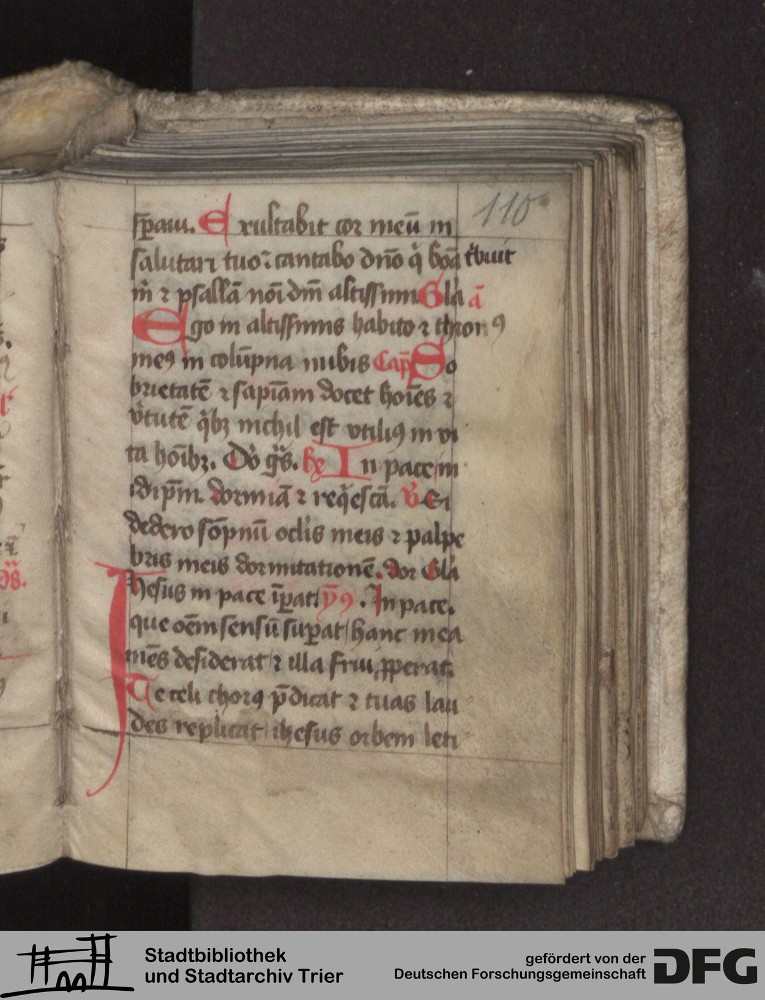 110
sꝑaui. Exultabit cor meū in
salutari tuo: cantabo dn̄o q̇ bōa t͛buit
m̄ ⁊ psallā nōi dn̄i altissimi Glā ā
Ego in altissimis habito ⁊ thronꝰ
meꝰ in colūpna nubis Cap̄ So
brietatē ⁊ sapīam docet hoīes ⁊
v͛tutē q̇bꝫ nichil est vtiliꝰ in vi
ta hoībꝫ. Dō gr̄s. ꝶ In pace in
idip̄m. dormiā ⁊ req̇escā. v̇ Si
dedero sōpnū oclis meis ⁊ palpe
bris meis dormitationē. dor Glā
Jhesus in pace īꝑat yꝰ. In pace.
que oēm sensū suꝑat hanc mea
mēs desiderat ⁊ illa frui ꝓperat.
Te celi chorꝰ p̄dicat ⁊ tuas lau
des replicat ihesus orbem leti
Stadtbibliothek
und Stadtarchiv Trier
gefördert von der
Deutschen Forschungsgemeinschaft
DFG